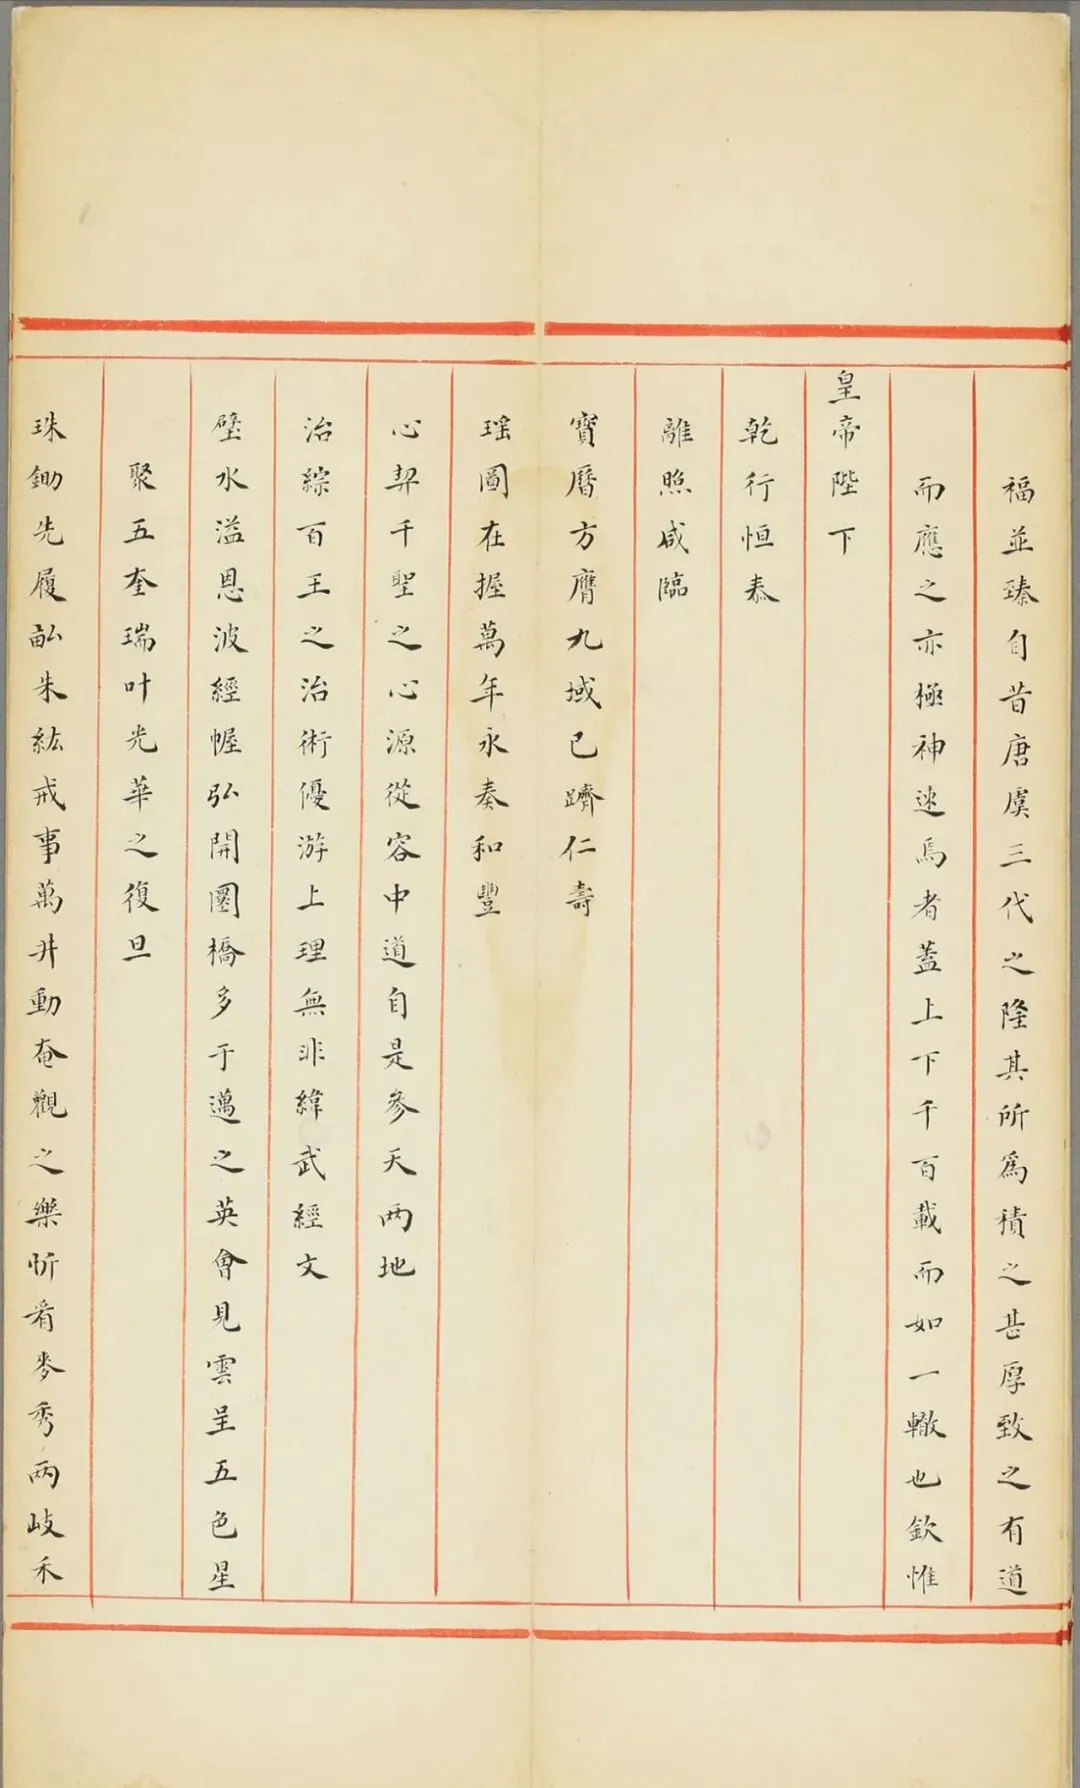 福並臻自昔唐虞三代之隆其所爲積之甚厚致之有道
而應之亦極神速焉者蓋上下千百載而如一轍也欽惟
皇帝陛下
乾行恒泰
離照咸臨
寳曆方膺九域已躋仁壽
瑶圖在握萬年永奏和豐
心契千聖之心源從容中道自是參天两地
治綜百王之治術優游上理無非緯武經文
壁水溢恩波經幄弘開圜橋多于邁之英會見雲呈五色星
聚五奎瑞叶光華之復旦
珠鋤先履畝朱紘戒事萬井動奄觀之樂忻看麥秀两岐禾